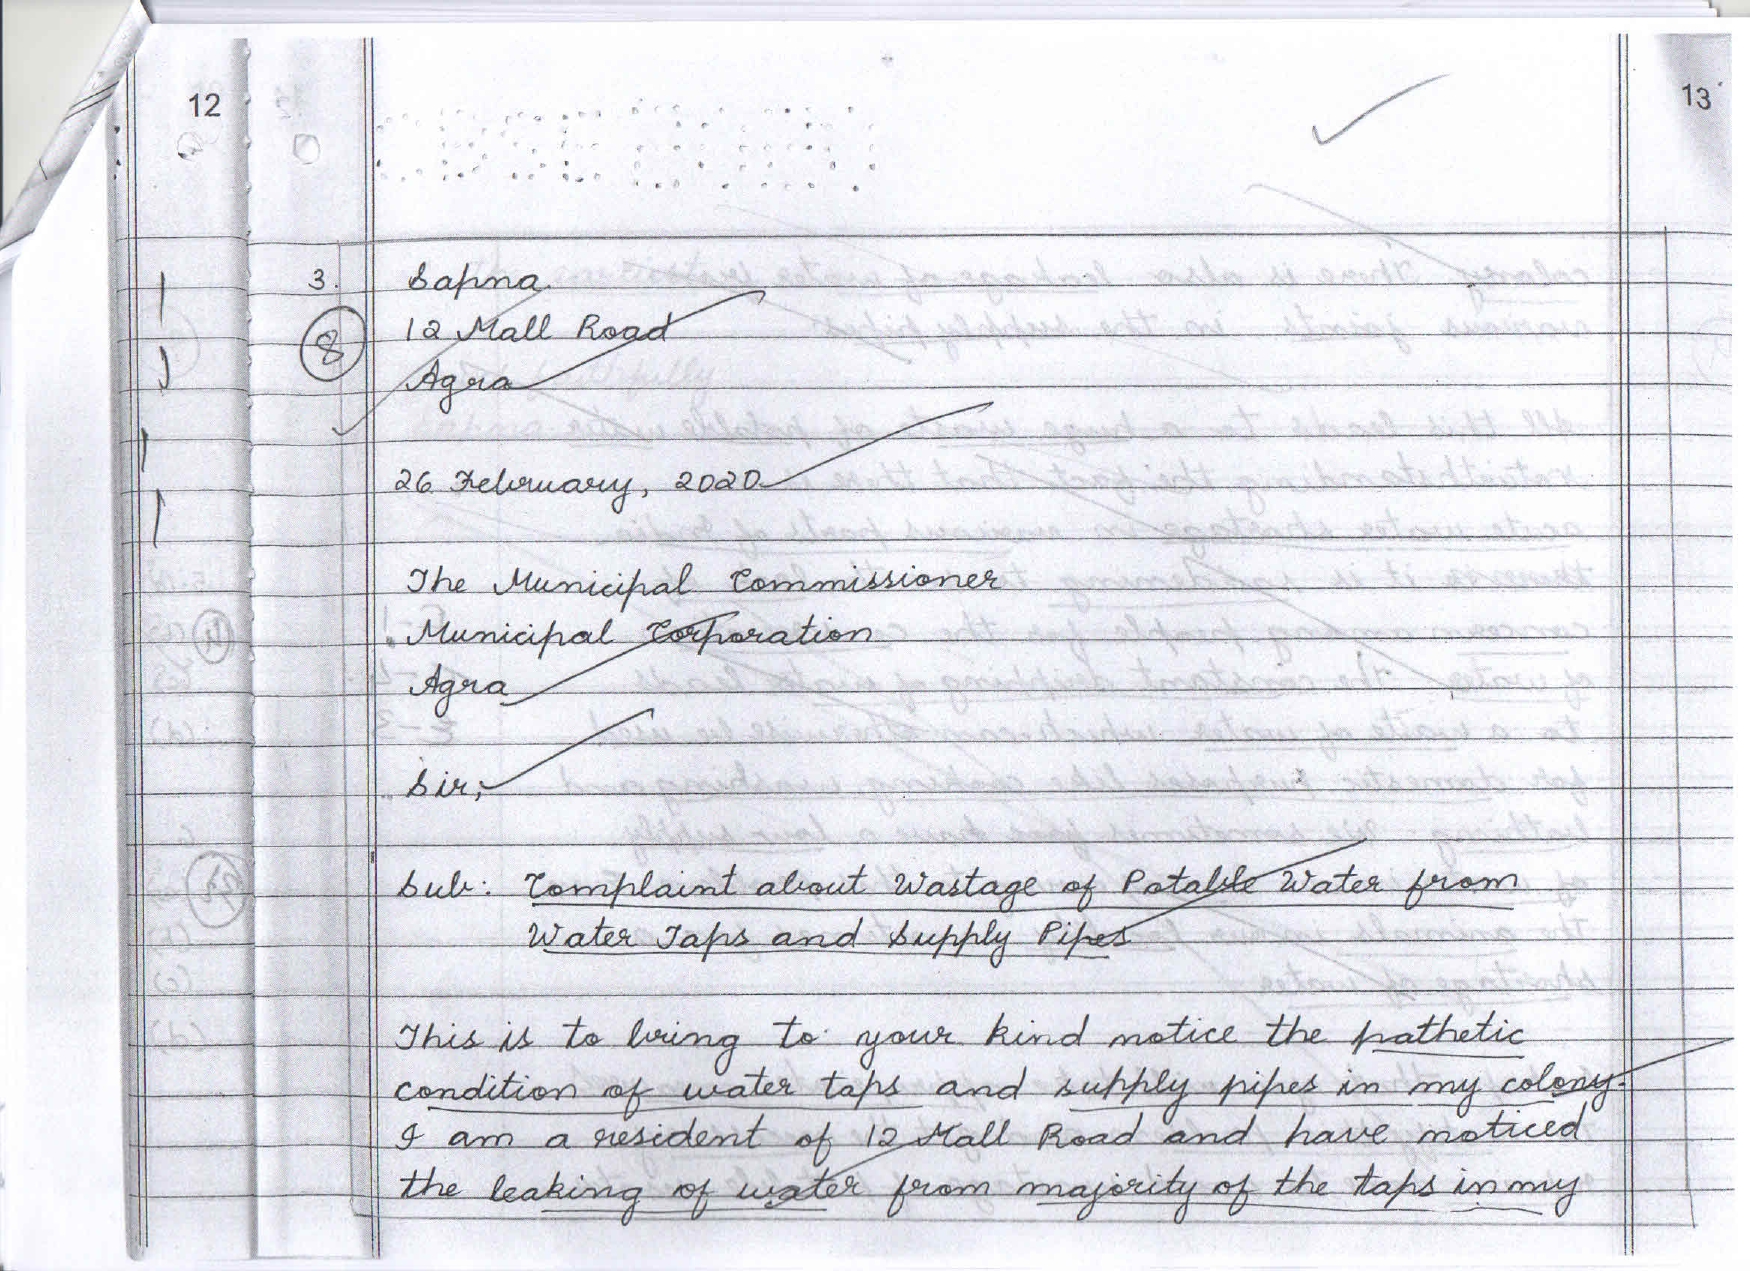 12
13
3. Sapna
8
12 Mall Road
Agra
26 February, 2020
The Municipal Commissioner
Municipal Corporation
Agra
Sir,
Sub: Complaint about Wastage of Potable Water from
Water Taps and Supply Pipes
This is to bring to your kind notice the pathetic
condition of water taps and supply pipes in my colony.
I am a resident of 12 Mall Road and have noticed
the leaking of water from majority of the taps in my